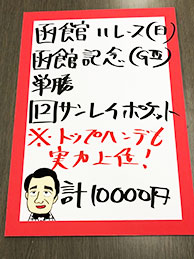 函館11レース(日)
函館記念(GⅢ)
単勝
12サンレイポケット
※トップハンデも
実力上位！
計10000円